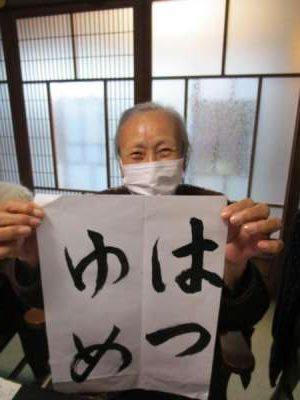 はつ
ゆめ